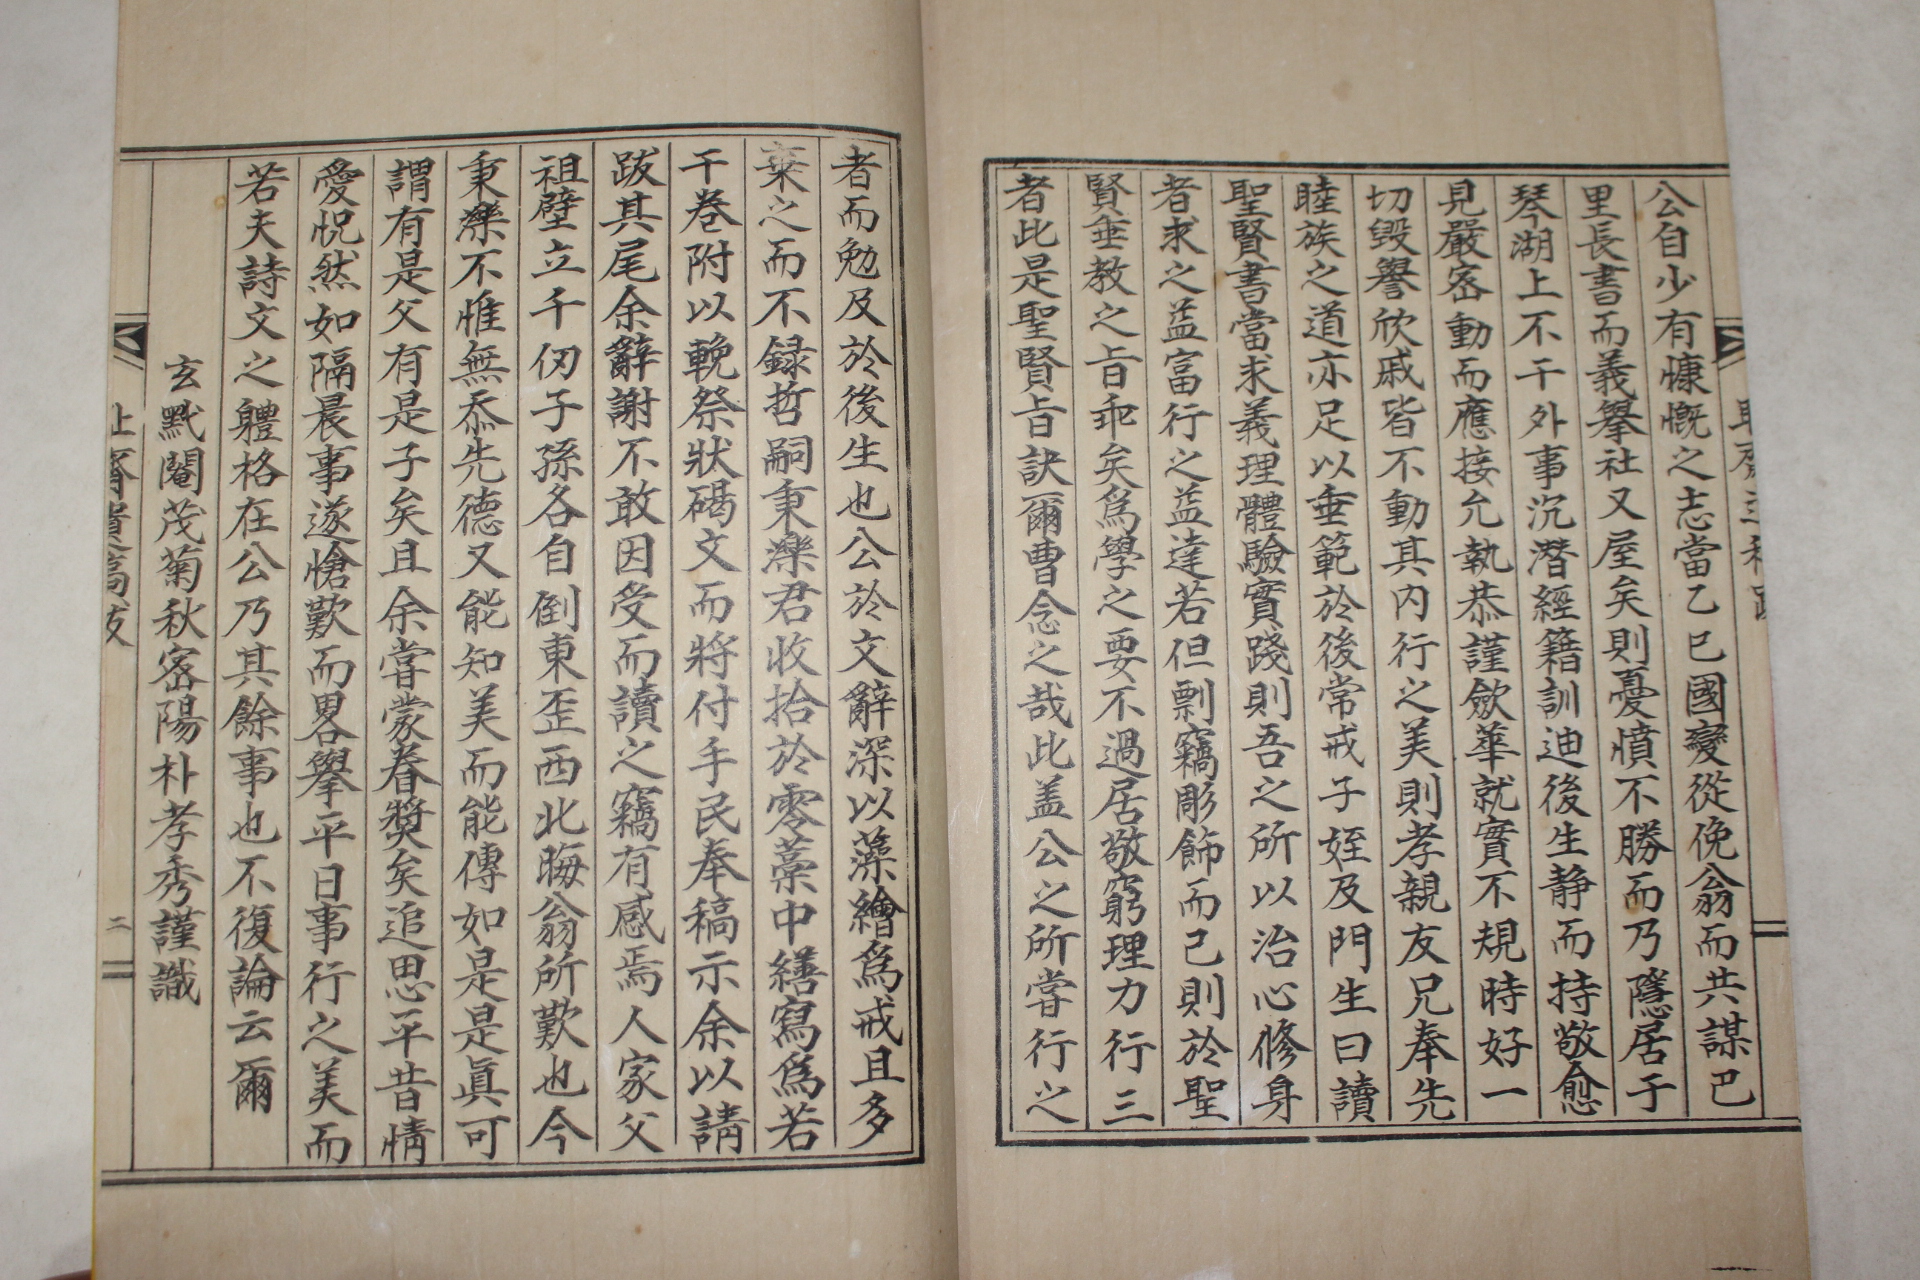 公自少有慷慨之志當乙巳國變從俛翁而共謀巴
里長書而義擧社又屋矣則憂憤不勝而乃隱居于
琴湖上不干外事沉潛經籍訓迪後生静而持敬愈
見嚴密動而應接允執恭謹斂華就實不規時好一
切毁譽欣戚皆不動其内行之美則孝親友兄奉先
睦族之道亦足以垂範於後常戒子姪及門生曰讀
聖賢書當求義理體驗實踐則吾之所以治心修身
者求之益富行之益達若但剽竊彫飾而已則於聖
賢垂教之旨乖矣爲學之要不過居敬窮理力行三
者此是聖賢旨訣爾曹念之哉此盖公之所嘗行之
者而勉及於後生也公於文辭深以藻繪爲戒且多
棄之而不録哲嗣秉濼君收拾於零藁中繕寫爲若
干卷附以輓祭狀碣文而將付手民奉稿示余以請
跋其尾余辭謝不敢因受而讀之竊有感焉人家父
祖壁立千仞子孫各自倒東歪西北晦翁所歎也今
秉濼不惟無忝先德又能知美而能傳如是是眞可
謂有是父有是子矣且余嘗蒙眷獎矣追思平昔情
愛怳然如隔晨事遂愴歎而畧擧平日事行之美而
若夫詩文之體格在公乃其餘事也不復論云爾
玄黓閹茂菊秋密陽朴孝秀謹識
二